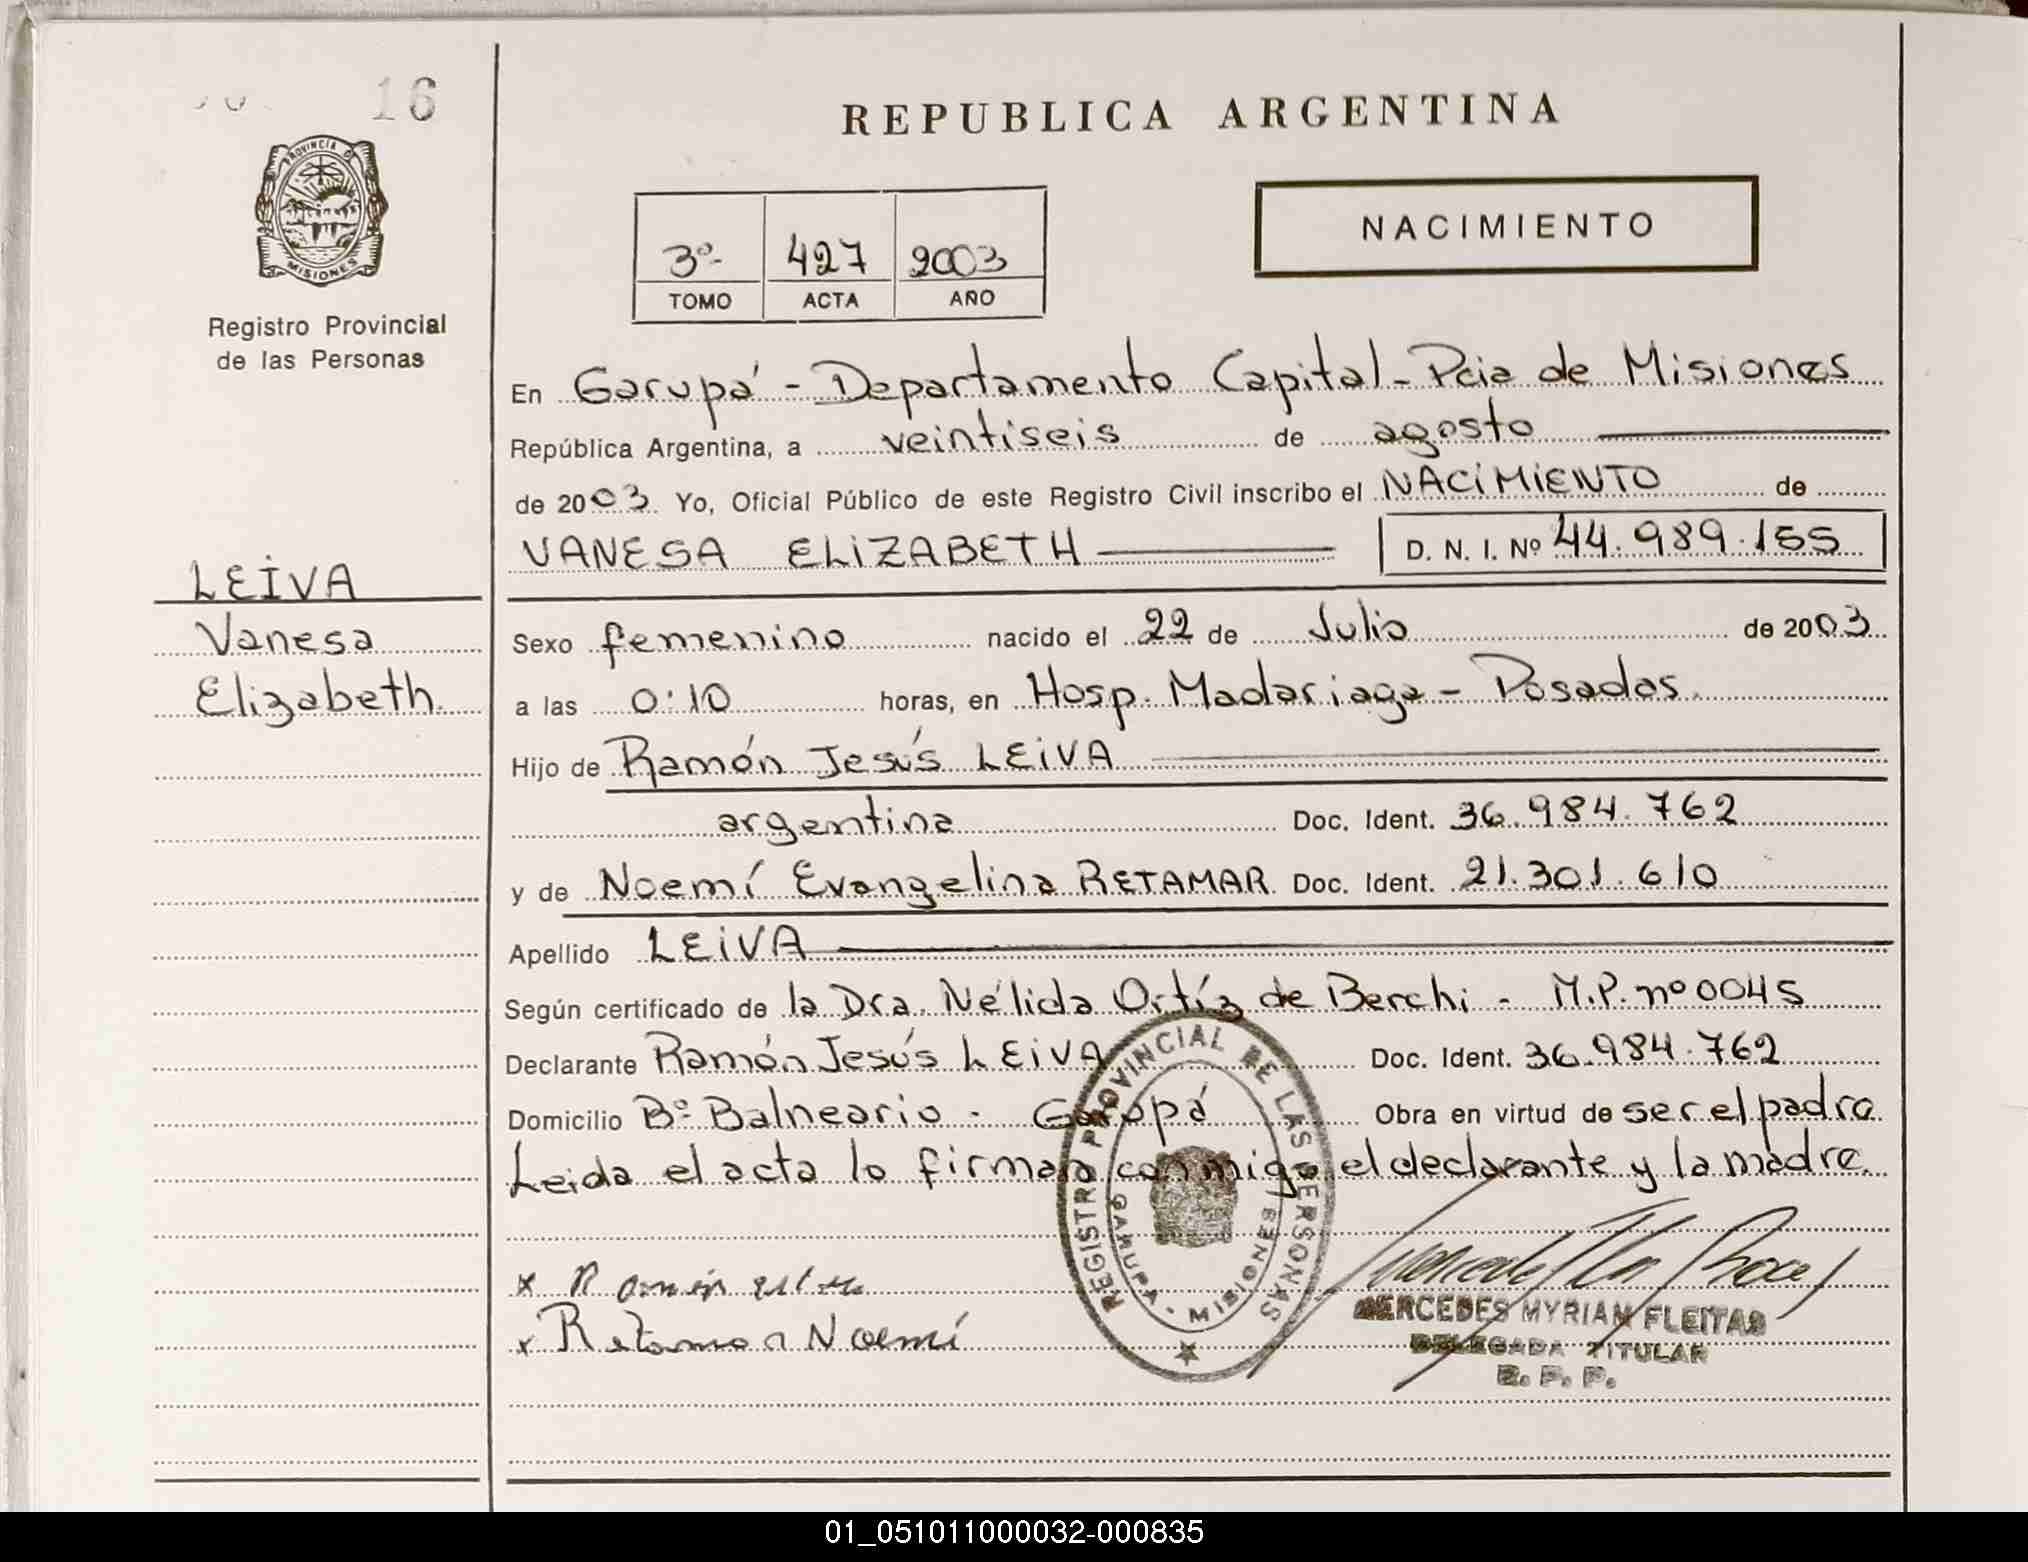 16
PROVINCIA DE
MISIONES
Registro Provincial
de las Personas
LEIVA
Vanesa
Elizabeth
REPUBLICA ARGENTINA
3º 427 2003
TOMO ACTA AÑO
NACIMIENTO
En Garupá - Departamento Capital - Pcia de Misiones
República Argentina, a veintiseis de agosto
de 2003. Yo, Oficial Público de este Registro Civil inscribo el NACIMIENTO de
VANESA ELIZABETH D. N. I. Nº 44.989.155
Sexo femenino nacido el 22 de Julio de 2003
a las 0:10 horas, en Hosp. Madariaga - Posadas.
Hijo de Ramón Jesús LEIVA
argentina Doc. Ident. 36.984.762
y de Noemí Evangelina RETAMAR Doc. Ident. 21.301.610
Apellido LEIVA
Según certificado de la Dra. Nélida Ortíz de Berchi - M.P. nº 0045
Declarante Ramón Jesús LEIVA Doc. Ident. 36.984.762
Domicilio Bº Balneario - Garupá Obra en virtud de ser el padre
Leida el acta lo firman conmigo el declarante y la madre.
REGISTRO PROVINCIAL DE LAS PERSONAS
GARUPA - MISIONES
x Ramón
x Retamar Noemí
MERCEDES MYRIAM FLEITAS
DELEGADA TITULAR
R. P. P.
01_051011000032-000835